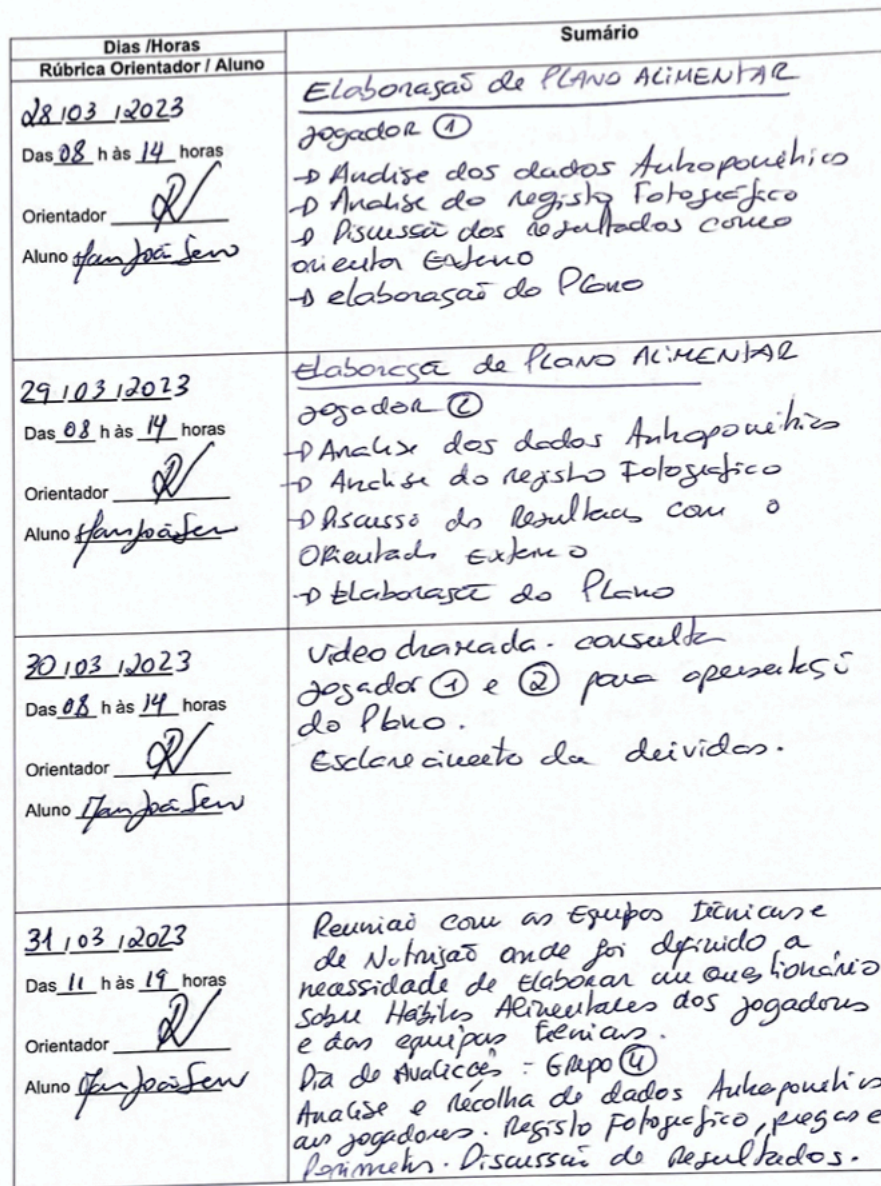 Dias /Horas
Rúbrica Orientador / Aluno
Sumário
28/03/2023
Das 08 h às 14 horas
Orientador
Aluno
Elaboração de PLANO ALIMENTAR
jogador ①
→ Analise dos dados Antropométrico
→ Analise do registo Fotográfico
→ Discussão dos resultados com o
orientador Externo
→ elaboração do Plano
29/03/2023
Das 08 h às 14 horas
Orientador
Aluno
Elaboração de PLANO ALIMENTAR
jogador ②
→ Analise dos dados Antropométrico
→ Analise do registo Fotografico
→ Discussão dos Resultados com o
Orientador Externo
→ Elaboração do Plano
30/03/2023
Das 08 h às 14 horas
Orientador
Aluno
video chamada. consulta
jogador ① e ② para apresentação
do Plano.
Esclarecimento da dúvidas.
31/03/2023
Das 11 h às 19 horas
Orientador
Aluno
Reunião com as Equipas técnicas e
de Nutrição onde foi definido a
necessidade de Elaborar um questionário
sobre Hábitos Alimentares dos jogadores
e das equipas técnicas.
Dia de Avaliações: Grupo ④
Analise e recolha de dados Antropométricos
aos jogadores. Registo Fotografico, pregas e
Perimetros. Discussão de Resultados.